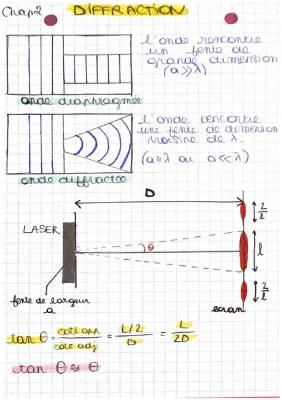 Chap 2 DIFFRACTION
l'onde rencontre
un fente de
grande dimension
(a≫λ)
onde diaphragmée
l'onde rencontre
une fente de dimension
voisine de λ.
(a≈λ ou a≪λ)
onde diffractée
D
LASER
θ
l
fente de largeur
a
ecran
tan θ = côté opp / côté adj = L/2 / D = L / 2D
tan θ ≈ θ